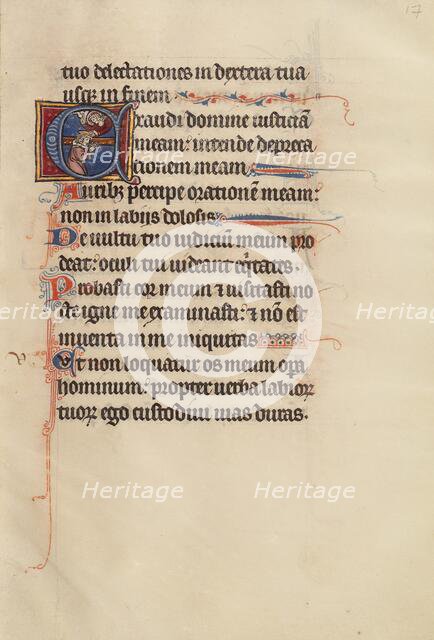 17
tuo delectationes in dextera tua
usq; in finem
Exaudi domine iusticiā
meam: intende depreca
cionem meam
Auribȝ percipe orationēm meam:
non in labijs dolosis
De uultu tuo iudiciūm meum pro
deat: oculi tui uideant eqͥtates.
Probasti cor meum ⁊ uisitasti no
cte igne me examinasti: ⁊ nō est
inuenta in me iniquitas
Ut non loquatur os meum opa
hominum: propter uerba labioꝝ
tuoꝝ ego custodiui uias duras.
Heritage Heritage Heritage
Heritage Heritage Heritage
Heritage Heritage